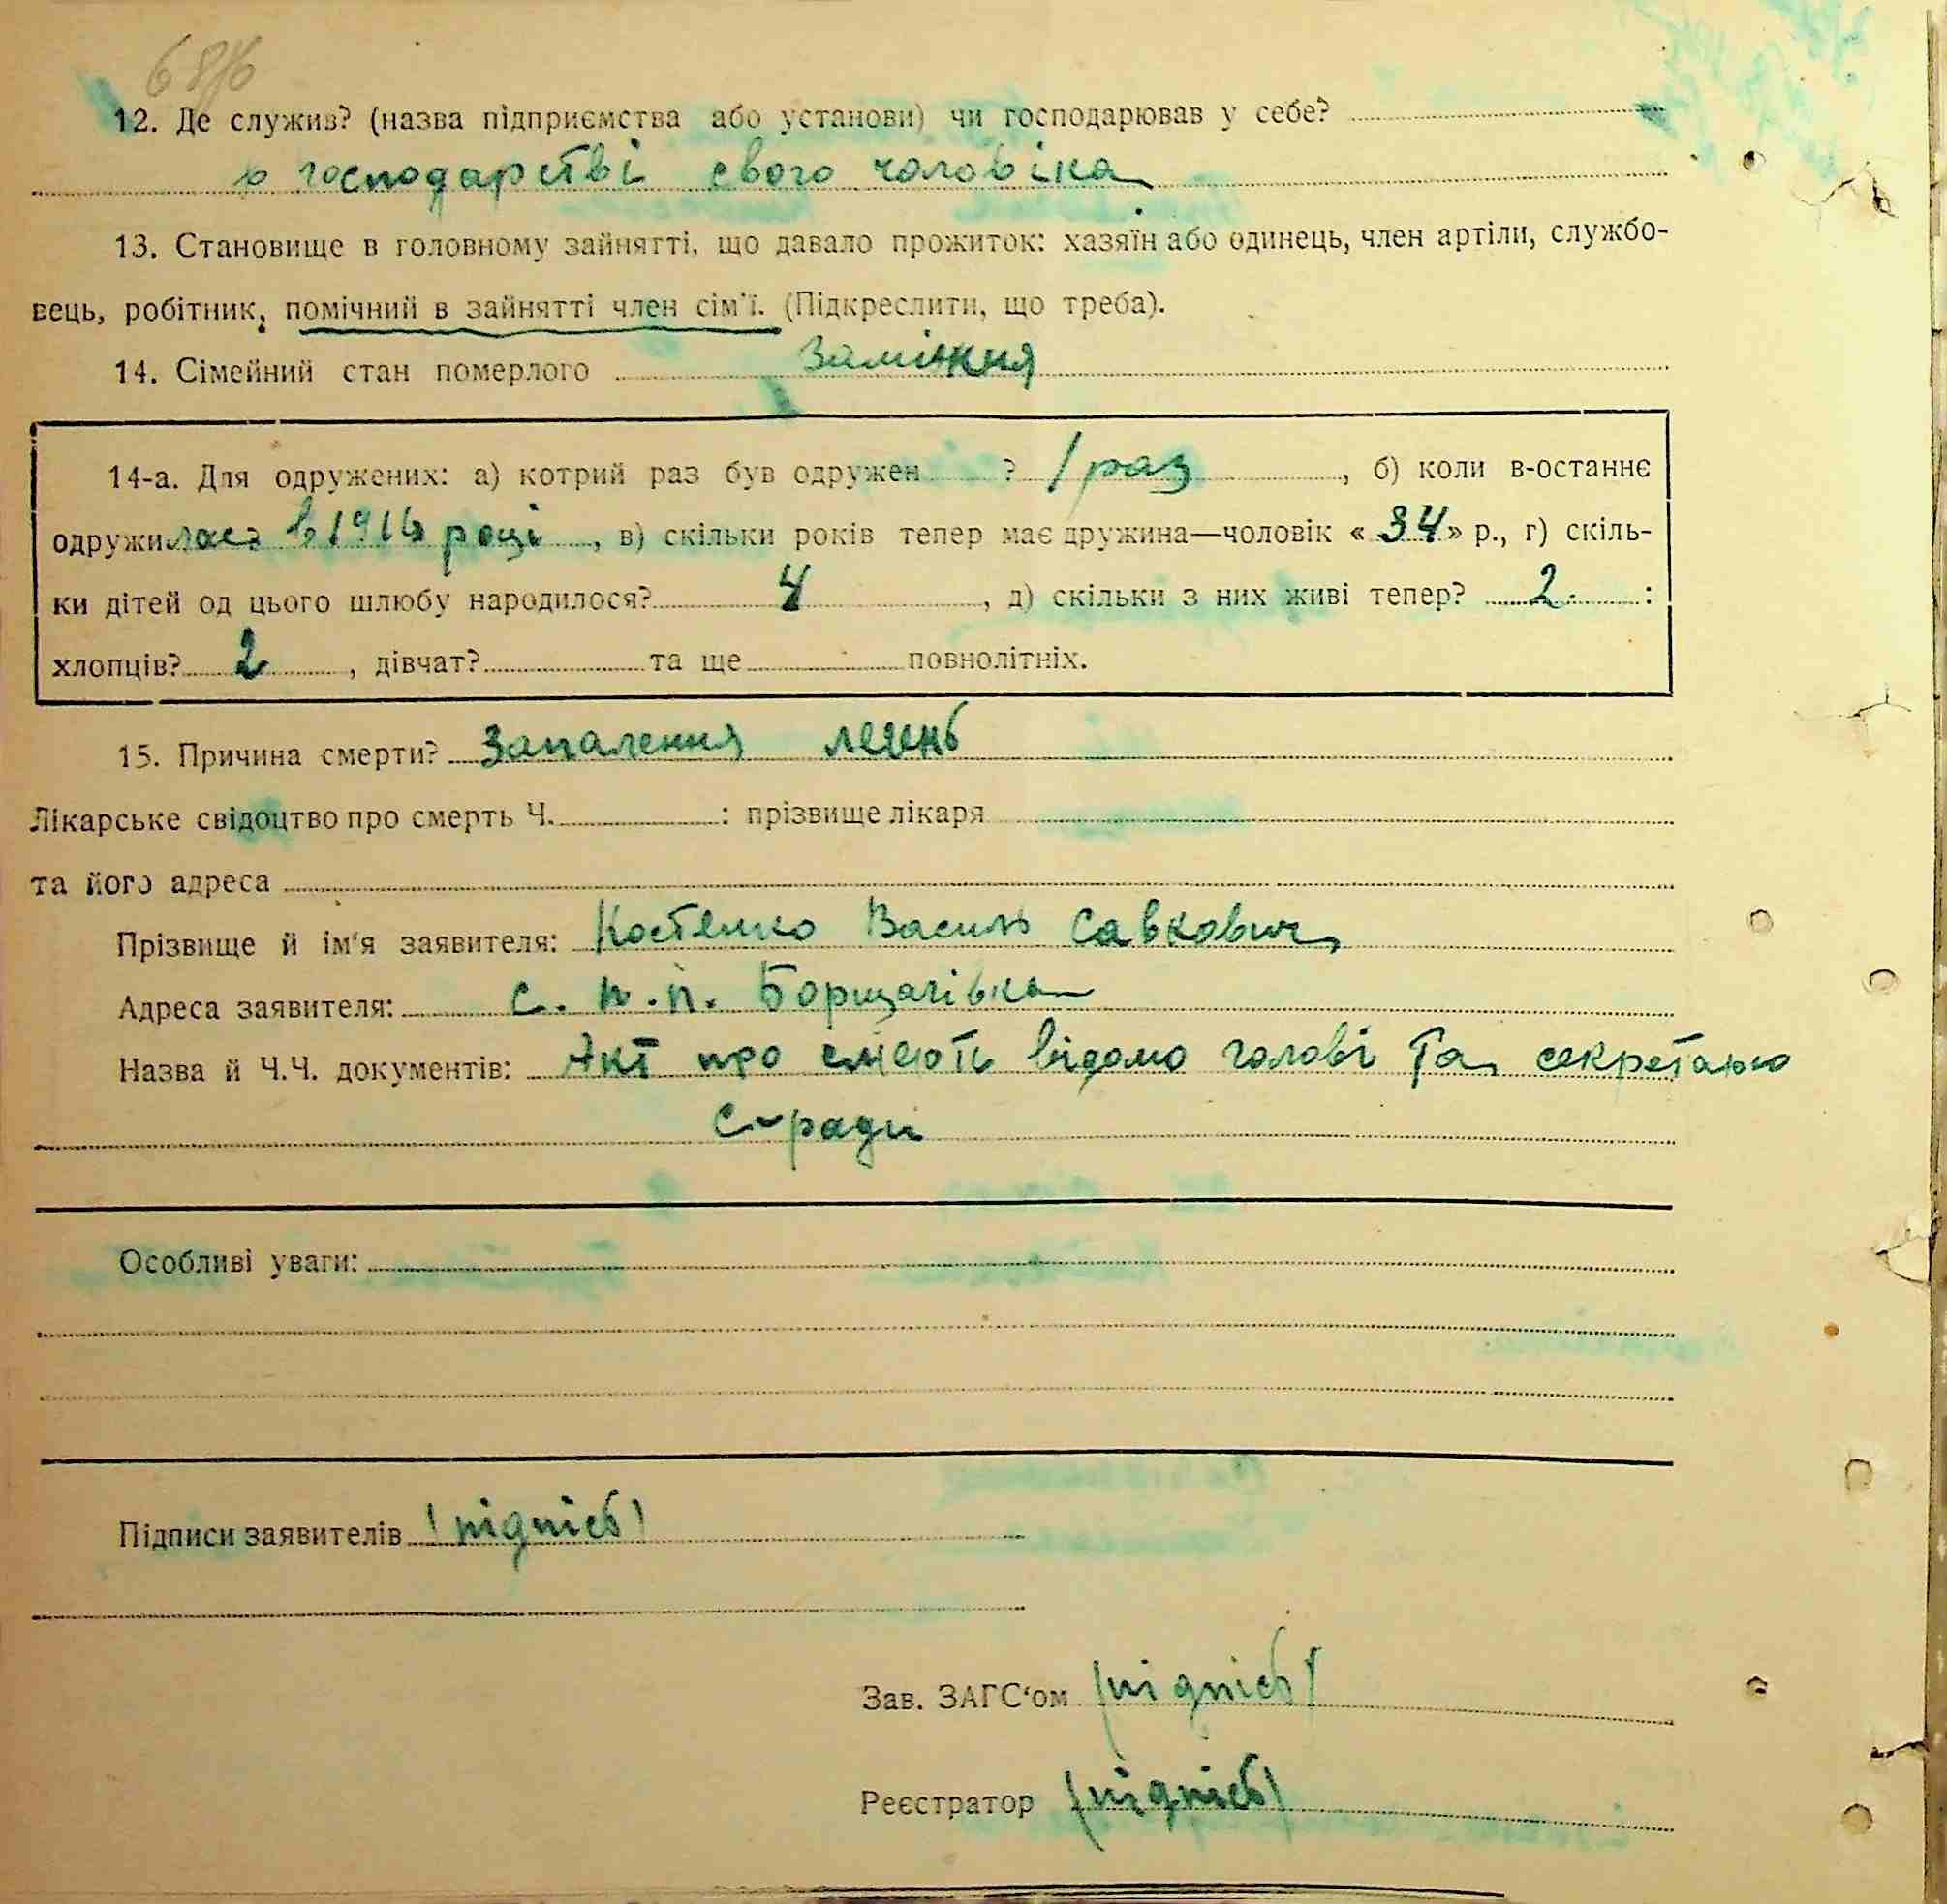 12. Де служив? (назва підприємства або установи) чи господарював у себе?
в господарстві свого чоловіка
13. Становище в головному зайнятті, що давало прожиток: хазяїн або одинець, член артіли, службо-
вець, робітник, помічний в зайнятті член сім'ї. (Підкреслити, що треба).
14. Сімейний стан померлого Заміжня
14-а. Для одружених: а) котрий раз був одружен ? 1 раз, б) коли в-останнє
одружилась в 1916 році, в) скільки років тепер має дружина—чоловік «34» р., г) скіль-
ки дітей од цього шлюбу народилося? 4, д) скільки з них живі тепер? 2. :
хлопців? 2, дівчат? та ще повнолітніх.
15. Причина смерти? Запалення легень
Лікарське свідоцтво про смерть Ч. : прізвище лікаря
та його адреса
Прізвище й ім'я заявителя: Костенко Василь Савкович
Адреса заявителя: с. п. п. Борщагівка
Назва й Ч.Ч. документів: Акт про смерть відомо голові та секретарю
с-ради
Особливі уваги:
Підписи заявителів (підпісь)
Зав. ЗАГС'ом (підпісь)
Реєстратор (підпісь)